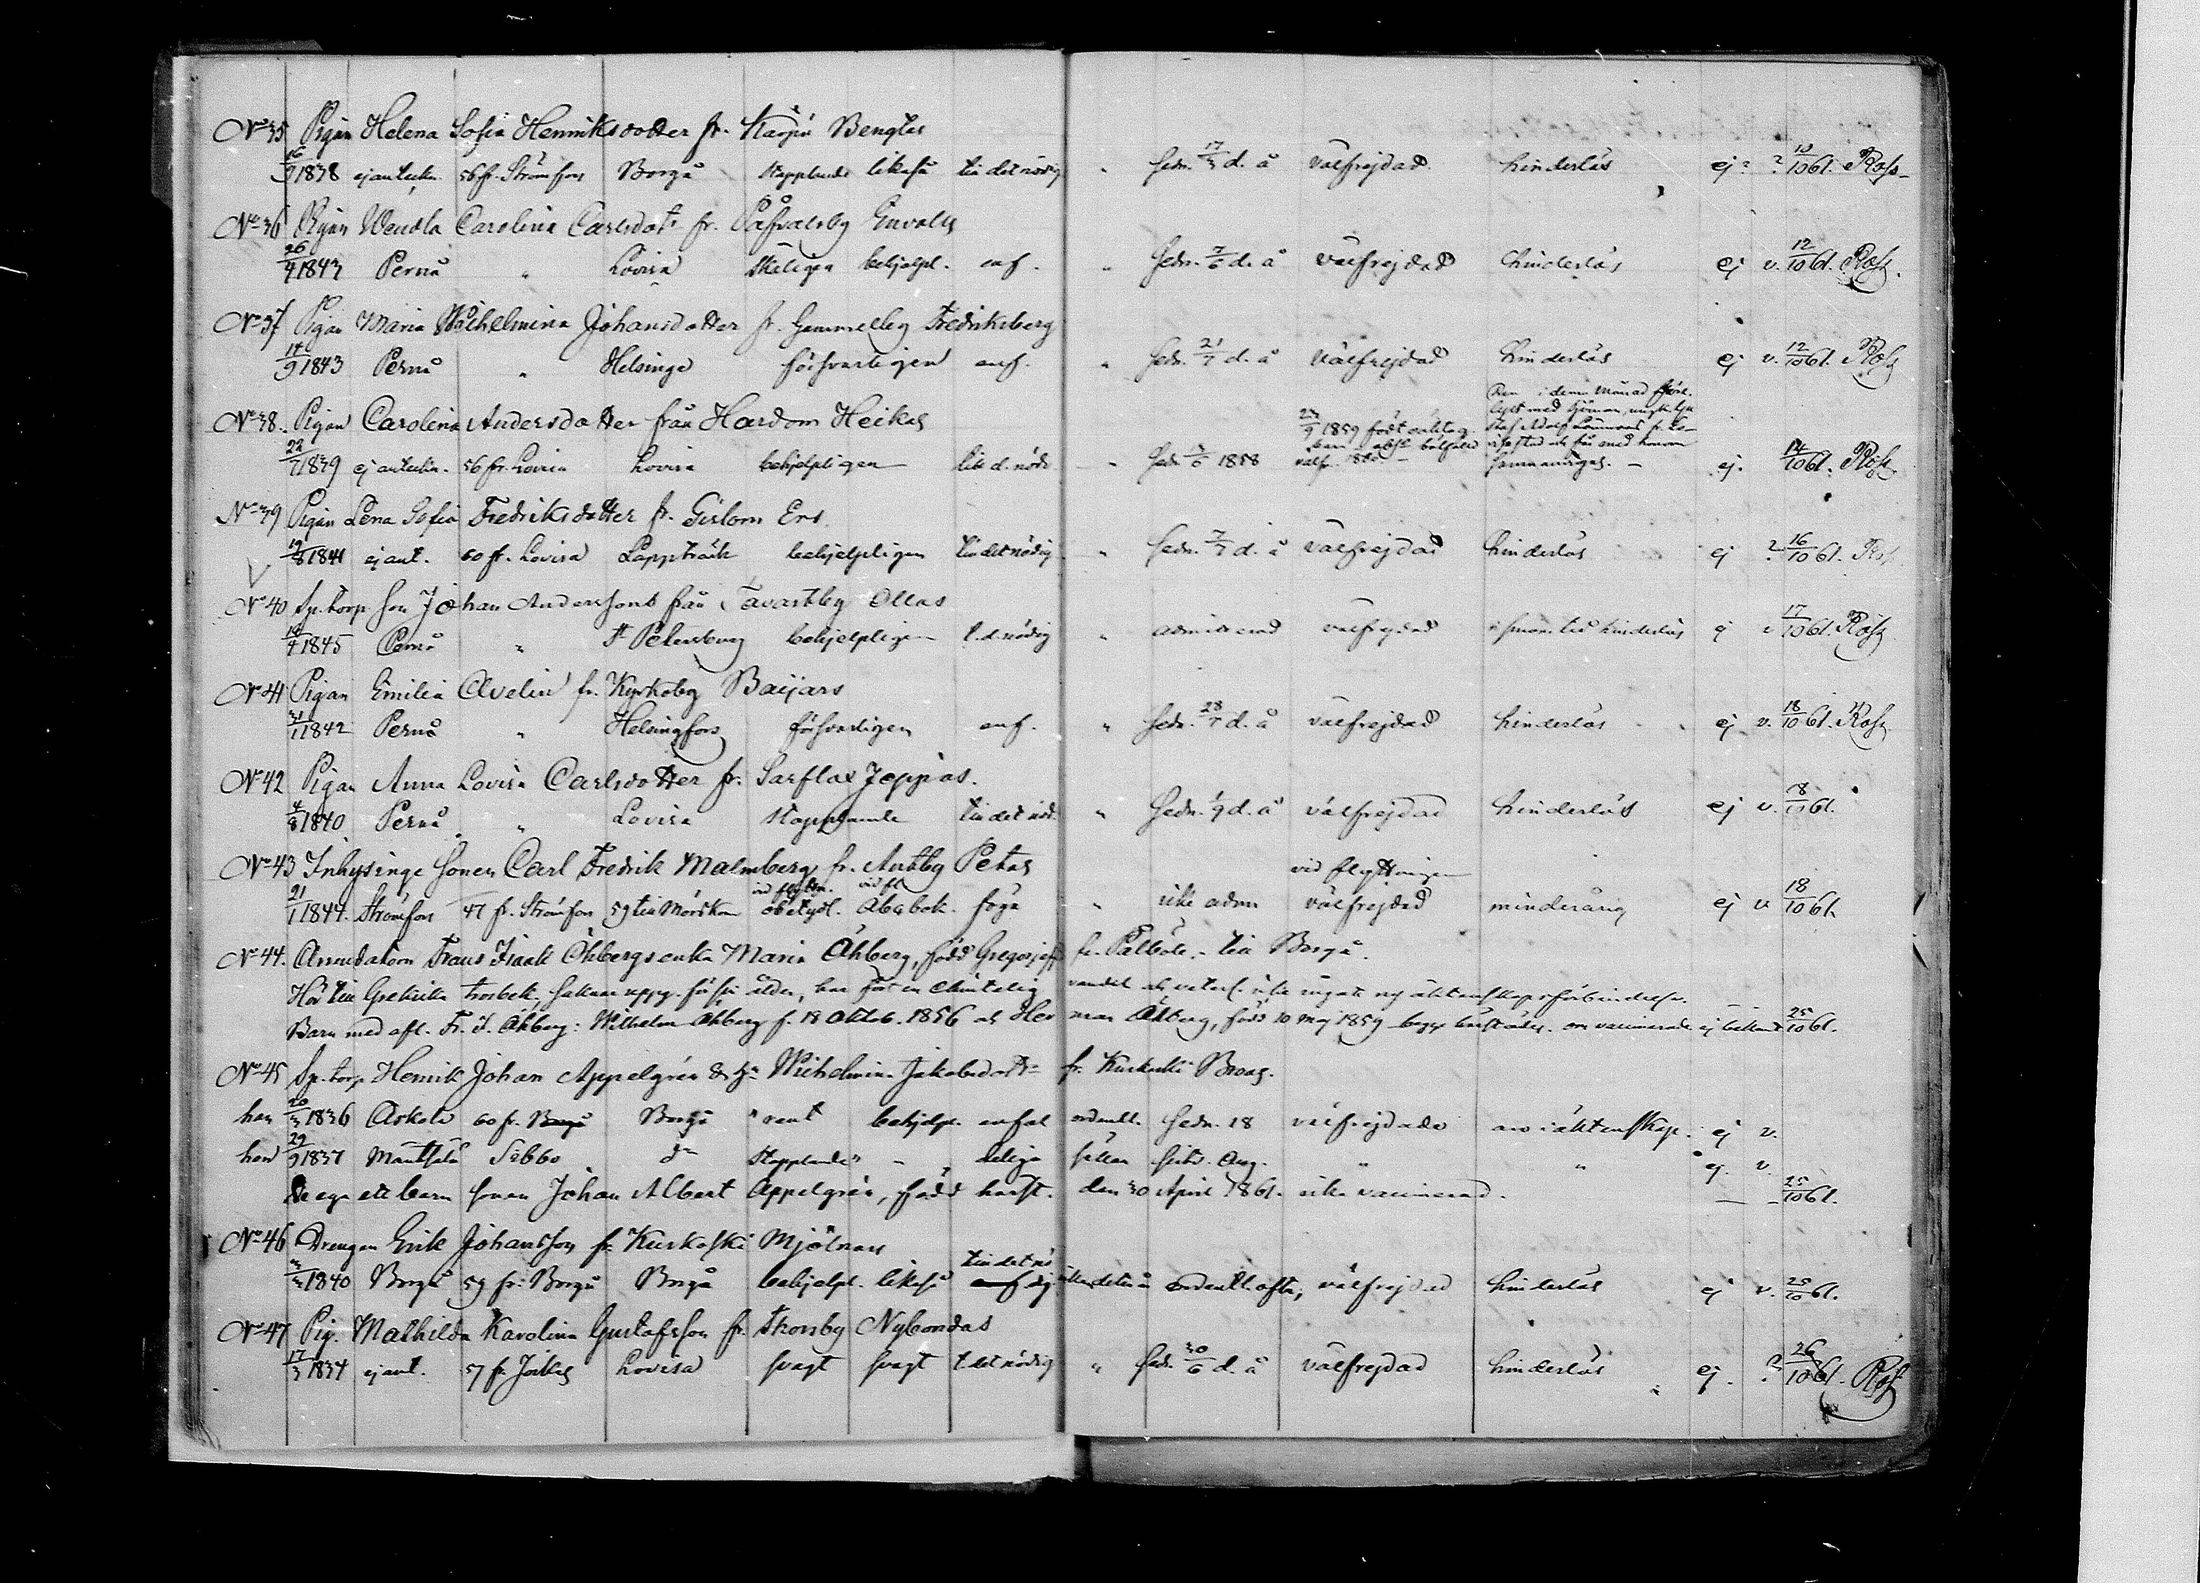 No 35 Pigan Helena Sofia Henriksdotter fr. Bengtas
16/9 1838 ej anteckn. 56 fr. Strömfors Borgå stapplande likaså till det nödig " sedn. 17/3 d. å välfrejdad hinderlös ej ? ? 10/10 61. Rosz
No 36 Pigan Wendla Carolina Carlsdotr fr. Såfvalsby Envalls
26/4 1843 Pernå " Lovisa skäligen behjelpl. enf. " sedn. 7/6 d. å välfrejdad hinderlös ej v. 12/10 61. Rosz
No 37 Pigan Maria Wilhelmina Johansdotter fr. Gammelby Fredriksberg
14/9 1843 Pernå " Helsinge försvarligen enf. " sedn. 21/7 d. å välfrejdad hinderlös ej v. 12/10 61. Rosz
No 38. Pigan Carolina Andersdotter från Hardom Heikas
22/7 1839 ej anteckn. 56 fr. Lovisa Lovisa behjelpligen till d. nöd. " sedn. 1858 1859 födt oäkta barn välfr. 1860. i denna månad med sjöman, och får med honom sammanvigas. ej. 14/10 61. Rosz
No 39 Pigan Lena Sofia Fredriksdotter fr. Gislom Ers
19/8 1841 ej ant. 60 fr. Lovisa Lappträsk behjelpligen till det nödig " sedn. 7/7 d. å välfrejdad hinderlös ej ? 16/10 61. Rosz
No 40 Sp. torp son Johan Andersson från Tavastby Ollas
18/4 1845 Pernå " St Petersburg behjelpligen t. d. nödig " admitterad välfrejdad hinderlös ej v 17/10 61. Rosz
No 41 Pigan Emilia Avelin fr. Kyrkoby Baijars
31/1 1842 Pernå " Helsingfors försvarligen enf. " sedn. 28/7 d. å välfrejdad hinderlös ej v. 18/10 61. Rosz
No 42 Pigan Anna Lovisa Carlsdotter fr. Sarflax Joppas.
4/8 1840 Pernå " Lovisa stapplande till det nöd. " sedn. 1/9 d. å välfrejdad hinderlös ej v. 18/10 61.
No 43 Inhysinge sonen Carl Fredrik Malmberg fr. Antby Petas
21/1 1844. Strömfors 47 fr. Strömfors 59 till Mörskom vid flyttn. obetydl. vid fl. Abcbok. föga " icke adm vid flyttningen välfrejdad minderårig ej v 18/10 61.
No 44. Arrendatorn Frans Isaak Öhbergs enka Maria Öhberg, född Gregorjeff fr. Pålböle. till Borgå.
Hör till Grekiska trosbek., saknar uppg. för sin ålder, har fört en christelig vandel och veterl. icke ingått ny äktenskapsförbindelse.
Barn med afl. Fr. I. Öhberg: Wilhelm Öhberg f. 18 Oktob. 1856 och Herman Öhberg, född 10 Maj 1859 begge härstädes. om vaccinerade ej bekant 25/10 61.
No 45 Sp. torp. Henrik Johan Appelgrén & h:u Wilhelmina Jakobsdotr fr. Kuskoski Broas.
han 20/3 1836 Askola 60 fr. Borgå Borgå rent behjelpl. enfal ordentl. sedn. 18 välfrejdade äktenskap. ej v.
hon 29/9 1837 Mäntsälä Sibbo do stapplande " delige sällan sistl. Aug. " " ej v.
De ega ett barn sonen Johan Albert Appelgrén, född härst. den 30 April 1861. icke vaccinerad. — — 25/10 61.
No 46 Drengen Erik Johansson fr. Kuskoski Mjölnars
3/3 1840 Borgå 59 fr. Borgå Borgå behjelpl. likaså till det nödig ordentl. ofta, välfrejdad hinderlös ej v. 25/10 61.
No 47 Pig. Mathilda Karolina Gustafsson fr. Skorsby Nybondas
17/3 1834 ej ant. 57 fr. Lovisa svagt svagt t. det nödig " sedn. 30/6 d. å välfrejdad hinderlös ej. ? 26/10 61. Rosz